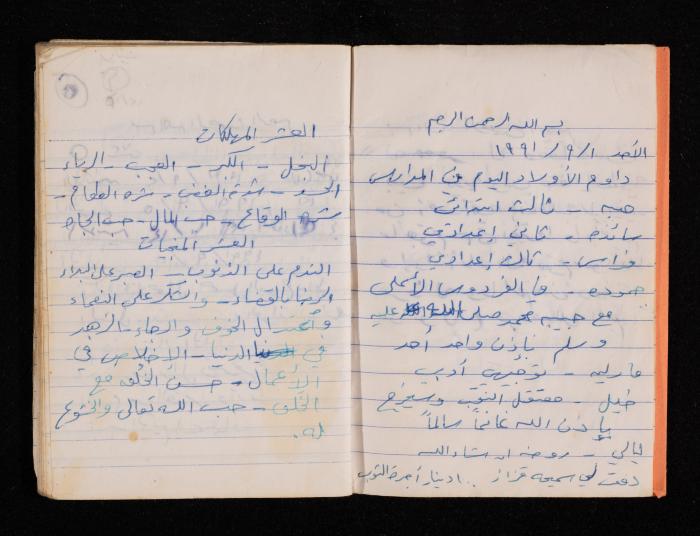 بسم الله الرحمن الرحيم
الأحد ١ / ٩ / ١٩٩١
داوم الأولاد اليوم في المدارس
هبه - ثالث ابتدائي
سائده - ثاني إعدادي
فراس - ثالث إعدادي
حموده - في الفردوس الأعلى
مع حبيبه محمد صلى الله عليه
وسلم بإذن واحد أحد
مارلين - توجيهي أدبي
خليل - معتقل النقب وسيخرج
بإذن الله غانماً سالماً
ليالي - روضه ان شاء الله
دفعت لي سميحه قزاز ١٠ دينار أجرة الثوب
العشر المهلكات
البخل - الكبر - العجب - الرياء
الحسد - شدة الغضب - شره الطعام -
شره الوقاع - حب المال - حب الجاه
العشر المنجيات
الندم على الذنوب - الصبر على البلاء
الرضا بالقضاء - والشكر على النعماء
الخوف والرجاء - الزهد
في الدنيا - الإخلاص في
الأعمال - حسن الخلق مع
الخلق - حب الله تعالى والخشوع
له.